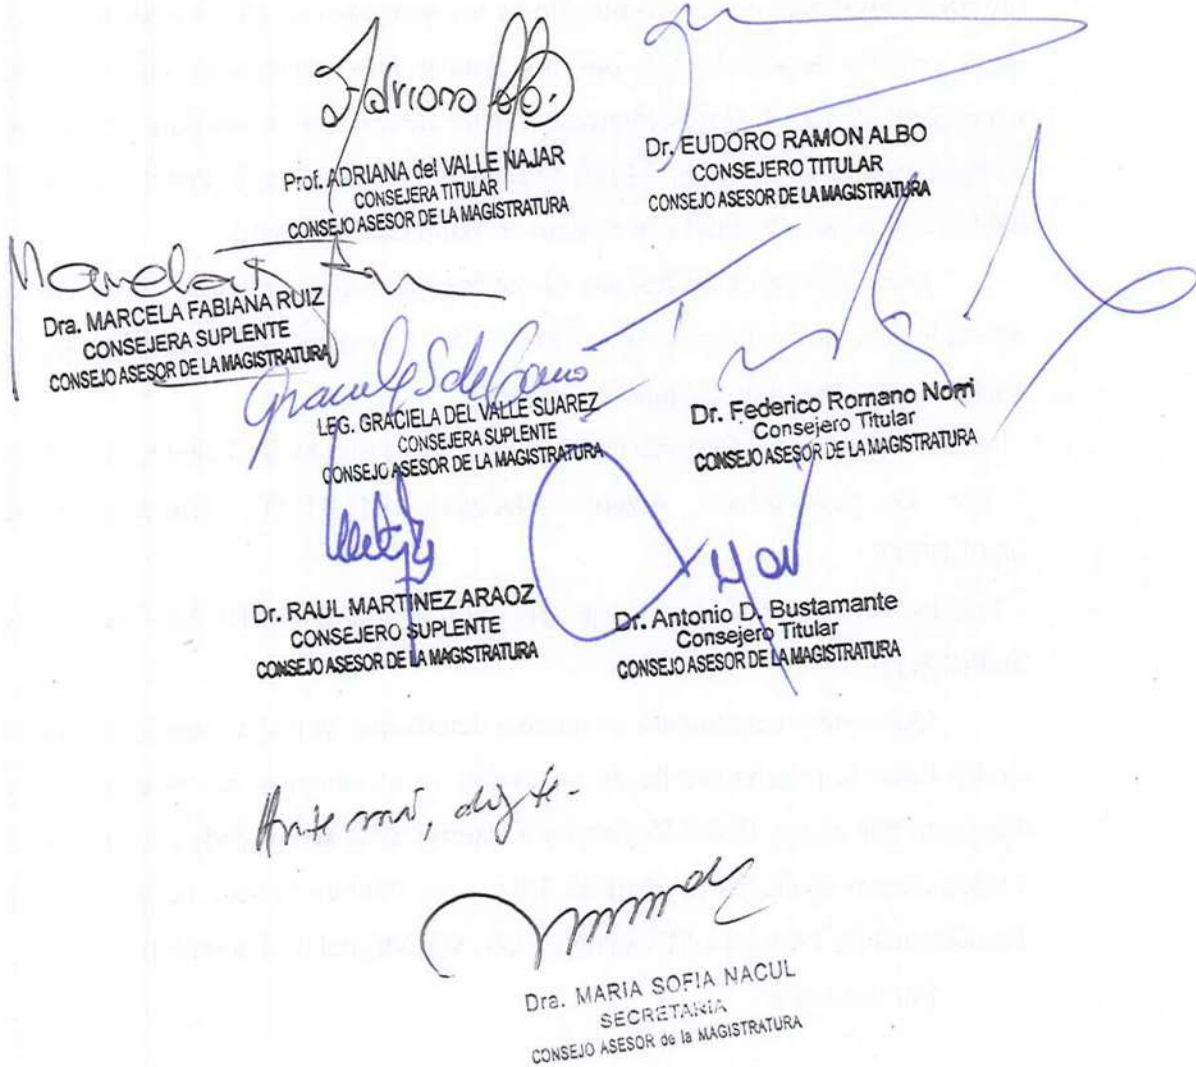 Prof. ADRIANA del VALLE NAJAR
CONSEJERA TITULAR
CONSEJO ASESOR DE LA MAGISTRATURA
Dr. EUDORO RAMON ALBO
CONSEJERO TITULAR
CONSEJO ASESOR DE LA MAGISTRATURA
Dra. MARCELA FABIANA RUIZ
CONSEJERA SUPLENTE
CONSEJO ASESOR DE LA MAGISTRATURA
LEG. GRACIELA DEL VALLE SUAREZ
CONSEJERA SUPLENTE
CONSEJO ASESOR DE LA MAGISTRATURA
Dr. Federico Romano Norri
Consejero Titular
CONSEJO ASESOR DE LA MAGISTRATURA
Dr. RAUL MARTINEZ ARAOZ
CONSEJERO SUPLENTE
CONSEJO ASESOR DE LA MAGISTRATURA
Dr. Antonio D. Bustamante
Consejero Titular
CONSEJO ASESOR DE LA MAGISTRATURA
Ante mí, doy fe.
Dra. MARIA SOFIA NACUL
SECRETARIA
CONSEJO ASESOR de la MAGISTRATURA